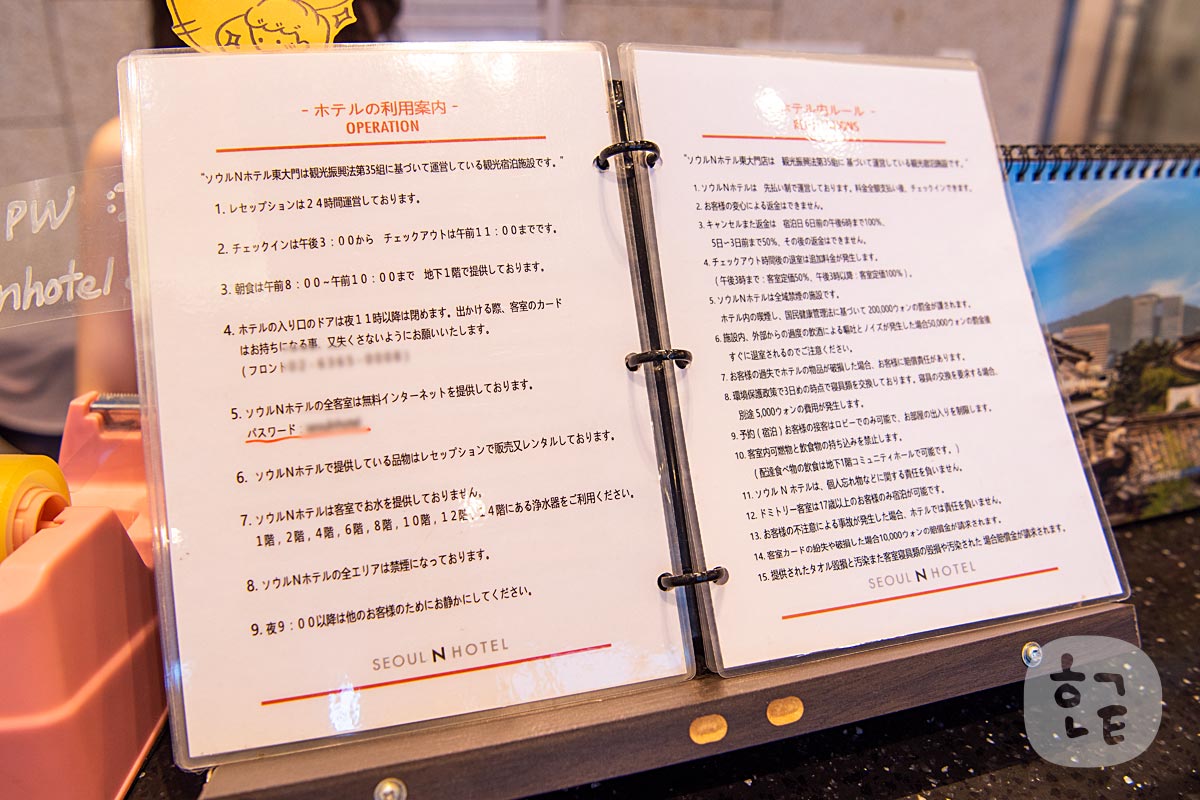 PW :
nhotel
- ホテルの利用案内 -
OPERATION
"ソウルNホテル東大門は観光振興法第35組に基づいて運営している観光宿泊施設です。"
1. レセップションは24時間運営しております。
2. チェックインは午後3:00から チェックアウトは午前11:00までです。
3. 朝食は午前8:00~午前10:00まで 地下1階で提供しております。
4. ホテルの入り口のドアは夜11時以降は閉めます。出かける際、客室のカード
はお持ちになる事、又失くさないようにお願いいたします。
(フロント
5. ソウルNホテルの全客室は無料インターネットを提供しております。
パスワード:
6. ソウルNホテルで提供している品物はレセップションで販売又レンタルしております。
7. ソウルNホテルは客室でお水を提供しておりません。
1階, 2階, 4階, 6階, 8階, 10階, 12階, 4階にある浄水器をご利用ください。
8. ソウルNホテルの全エリアは禁煙になっております。
9. 夜9:00以降は他のお客様のためにお静かにしてください。
SEOUL N HOTEL
ホテル内ルール -
"ソウルNホテル東大門店は 観光振興法第35組に基づいて運営している観光宿泊施設です。"
1. ソウルNホテルは 先払い制で運営しております。料金全額支払い後、チェックインできます。
2. お客様の変心による返金はできません。
3. キャンセルまた返金は 宿泊日 6日前の午後6時まで100%、
5日−3日前まで50%、その後の返金はできません。
4. チェックアウト時間後の退室は追加料金が発生します。
(午後3時まで:客室定価50%、午後3時以降:客室定価100%)。
5. ソウルNホテルは全域禁煙の施設です。
ホテル内の喫煙し、国民健康管理法に基づいて 200,000ウォンの罰金が課されます。
6. 施設内、外部からの過度の飲酒による嘔吐とノイズが発生した場合50,000ウォンの罰金後
すぐに退室されるのでご注意ください。
7. お客様の過失でホテルの物品が破損した場合、お客様に賠償責任があります。
8. 環境保護政策で3日めの時点で寝具類を交換しております。寝具の交換を要求する場合、
別途 5,000ウォンの費用が発生します。
9. 予約(宿泊)お客様の接客はロビーでのみ可能で、お部屋の出入りを制限します。
10. 客室内可燃物と飲食物の持ち込みを禁止します。
(配達食べ物の飲食は地下1階コミュニティホールで可能です。)
11. ソウル N ホテルは、個人忘れ物などに関する責任を負いません。
12. ドミトリー客室は17歳以上のお客様のみ宿泊が可能です。
13. お客様の不注意による事故が発生した場合、ホテルでは責任を負いません。
14. 客室カードの紛失や破損した場合10,000ウォンの賠償金が請求されます。
15. 提供されたタオル毀損と汚染また客室寝具類の毀損や汚染された 場合賠償金が請求されます。
SEOUL N HOTEL